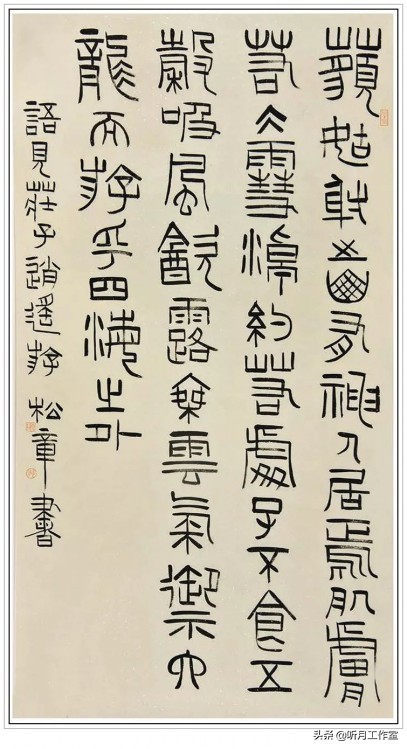 藐姑射有神人居焉肌膚
若仌雪淖約若處子不食五
穀吸風飲露乘雲氣禦六
龍而游乎四海之外
語見莊子逍遙游 松章書
头条 @听月工作室